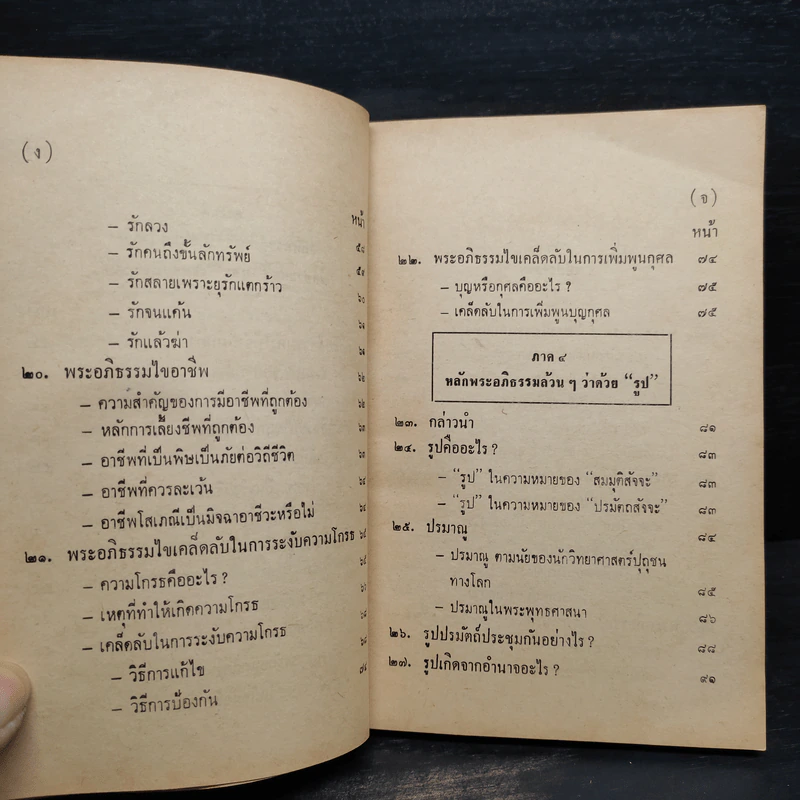 (ง)
หน้า
– รักลวง ๕๘
– รักคนถึงขั้นลักทรัพย์ ๕๙
– รักสลายเพราะยุรักแตกร้าว ๖๐
– รักจนแค้น ๖๑
– รักแล้วฆ่า ๖๑
๒๐. พระอภิธรรมไขอาชีพ ๖๒
– ความสำคัญของการมีอาชีพที่ถูกต้อง ๖๒
– หลักการเลี้ยงชีพที่ถูกต้อง ๖๓
– อาชีพที่เป็นพิษเป็นภัยต่อวิถีชีวิต ๖๓
– อาชีพที่ควรละเว้น ๖๔
– อาชีพโสเภณีเป็นมิจฉาอาชีวะหรือไม่ ๖๔
๒๑. พระอภิธรรมไขเคล็ดลับในการระงับความโกรธ
– ความโกรธคืออะไร ?
– เหตุที่ทำให้เกิดความโกรธ
– เคล็ดลับในการระงับความโกรธ
– วิธีการแก้ไข
– วิธีการป้องกัน
(จ)
หน้า
๒๒. พระอภิธรรมไขเคล็ดลับในการเพิ่มพูนกุศล ๗๔
– บุญหรือกุศลคืออะไร ? ๗๕
– เคล็ดลับในการเพิ่มพูนบุญกุศล ๗๕
ภาค ๔
หลักพระอภิธรรมล้วน ๆ ว่าด้วย “รูป”
๒๓. กล่าวนำ ๘๑
๒๔. รูปคืออะไร ? ๘๓
– “รูป” ในความหมายของ “สมมุติสัจจะ” ๘๓
– “รูป” ในความหมายของ “ปรมัตถสัจจะ” ๘๓
๒๕. ปรมาณู ๘๔
– ปรมาณู ตามนัยของนักวิทยาศาสตร์ปุถุชน
ทางโลก ๘๕
– ปรมาณูในพระพุทธศาสนา ๘๖
๒๖. รูปปรมัตถ์ประชุมกันอย่างไร ? ๘๘
๒๗. รูปเกิดจากอำนาจอะไร ? ๙๑